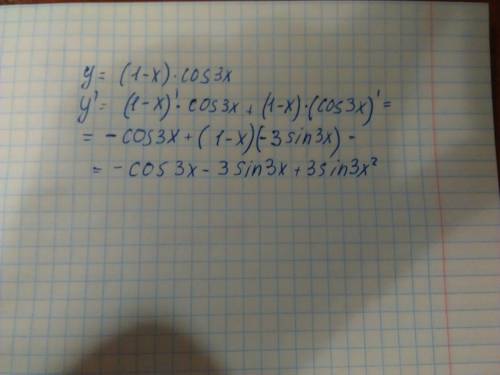 y = (1-x)·cos3x
y' = (1-x)'·cos3x + (1-x)·(cos3x)' =
= -cos3x + (1-x)(-3sin3x) -
= -cos3x - 3sin3x + 3sin3x²